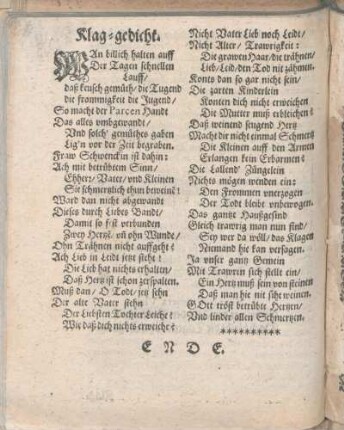 Klag-gedicht.
MAn billich halten auff
Der Tagen schnellen
Lauff/
daß keusch gemüth/ die Tugend
die frommigkeit die Jugend/
So macht der Parcen Handt
Das alles vmbgewandt/
Vnd solch' gemüthes gaben
Lig'n vor der Zeit begraben.
Fraw Schwendi'n ist dahin:
Ach mit betrübtem Sinn/
Ehherr/ Vater/ vnd Kleinen
Sie schmertzlich thun beweinē!
Ward dan nicht abgewandt
Dieses durch Liebes Bandt/
Damit so fest verbunden
Zwey Hertzē, vñ ohn Wunde/
Ohn Trähnen nicht auffgeht?
Ach Lieb in Leidt jetzt steht!
Die Lieb hat nichts erhalten/
Daß Hertz ist schon zerspalten.
Must dan/ O Todt/ jetz sehn
Der alte Vater stehn
Der Liebsten Tochter Leiche!
Wie daß dich nichts erweiche?
Nicht Vater Lieb noch Leidt/
Nicht Alter/ Trawrigkeit:
Die grawen Haar/ die trähnen/
Lieb/ Leid/ den Tod nit zähmen.
Konts dan so gar nicht sein/
Die zarten Kinderlein
Konten dich nicht erweichen
Die Mutter muß erbleichen!
Daß weinend seugend Hertz
Macht dir nicht einmal Schmertz
Die Kleinen auff den Armen
Erlangen kein Erbarmen!
Die Lallend' Züngelein
Nichts mögen wenden ein:
Den Frommen vnerzogen
Der Todt bleibt vnbewogen.
Das gantze Haußgesind
Gleich trawrig man nun find/
Sey wer da wöll/ das Klagen
Niemand hie kan versagen.
Ja vnser gantz Gemein
Mit Trawren sich stelle ein/
Ein Hertz muß sein von steinen
Daß man hie nit siht weinen.
GOtt tröst betrübte Hertzen/
Vnd linder allen Schmertzen.
**********
E N D E.